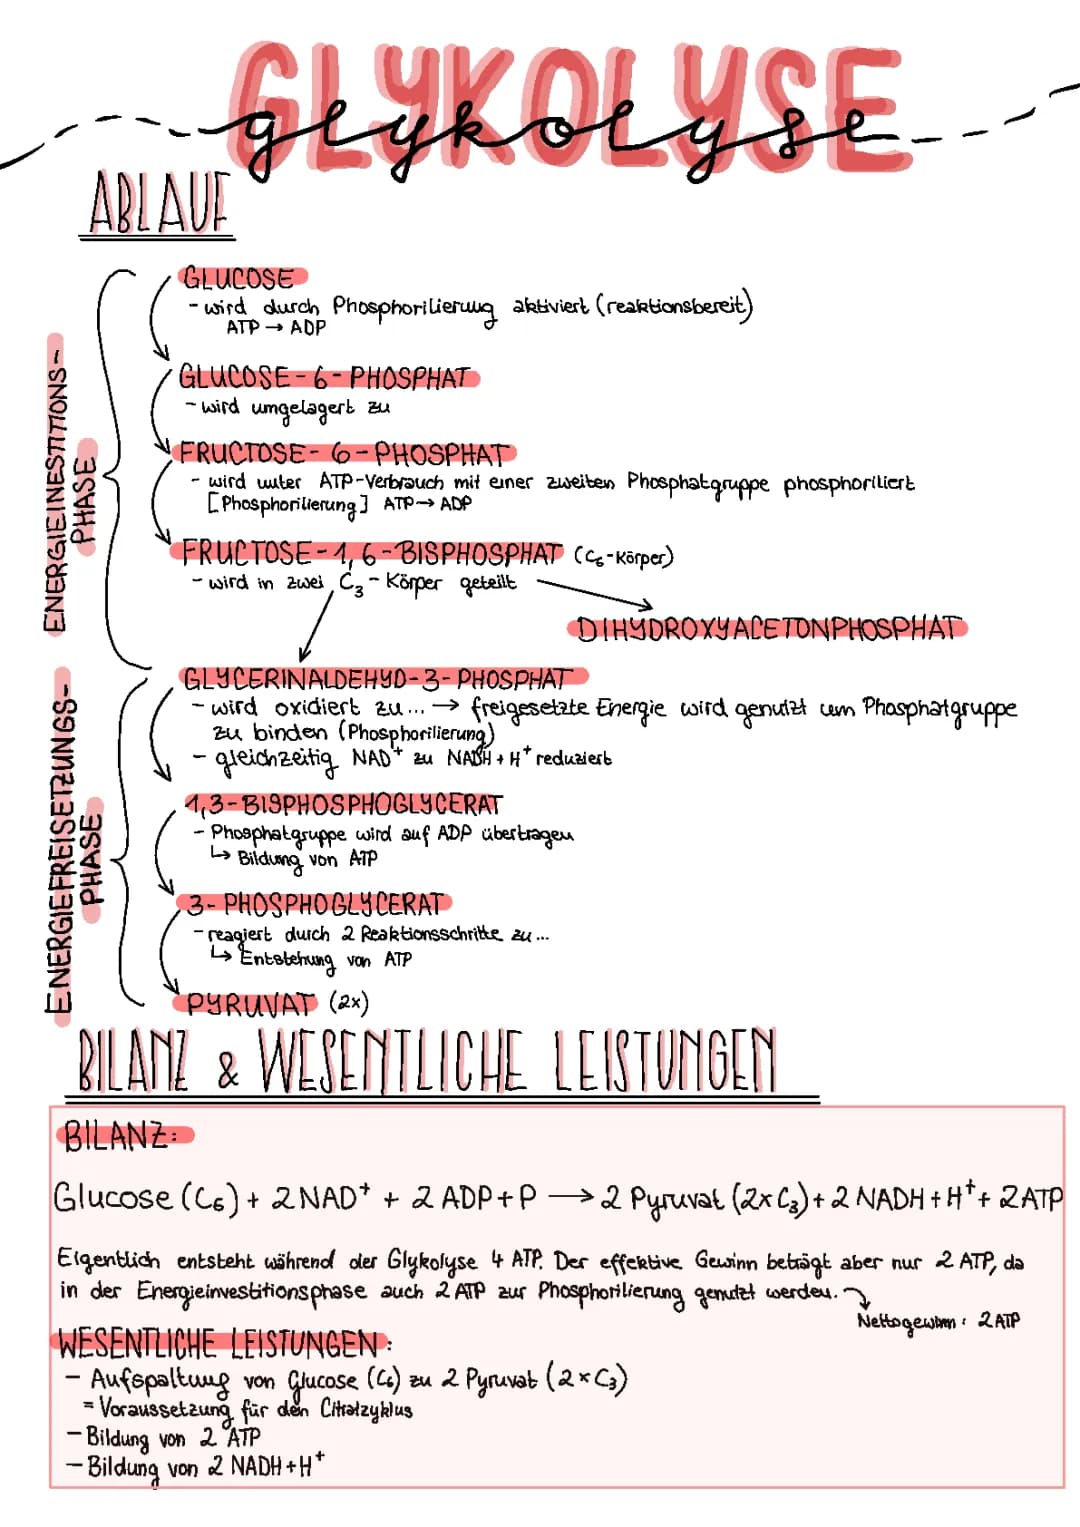 GLYKOLYSE
glykolyse
ABLAUF
ENERGIEINESTITIONS-
PHASE
GLUCOSE
- wird durch Phosphorilierung aktiviert (reaktionsbereit)
ATP → ADP
GLUCOSE-6-PHOSPHAT
- wird umgelagert zu
FRUCTOSE-6-PHOSPHAT
- wird unter ATP-Verbrauch mit einer zweiten Phosphatgruppe phosphoriliert
[Phosphorilierung] ATP → ADP
FRUCTOSE-1,6-BISPHOSPHAT (C₆-Körper)
- wird in zwei C₃-Körper geteilt
DIHYDROXYACETONPHOSPHAT
ENERGIEFREISETZUNGS-
PHASE
GLYCERINALDEHYD-3-PHOSPHAT
- wird oxidiert zu... → freigesetzte Energie wird genutzt um Phosphatgruppe
zu binden (Phosphorilierung)
- gleichzeitig NAD⁺ zu NADH + H⁺ reduziert
1,3-BISPHOSPHOGLYCERAT
- Phosphatgruppe wird auf ADP übertragen
↳ Bildung von ATP
3-PHOSPHOGLYCERAT
- reagiert durch 2 Reaktionsschritte zu...
↳ Entstehung von ATP
PYRUVAT (2x)
BILANZ & WESENTLICHE LEISTUNGEN
BILANZ:
Glucose (C₆) + 2 NAD⁺ + 2 ADP + P → 2 Pyruvat (2x C₃) + 2 NADH + H⁺ + 2 ATP
Eigentlich entsteht während der Glykolyse 4 ATP. Der effektive Gewinn beträgt aber nur 2 ATP, da
in der Energieinvestitionsphase auch 2 ATP zur Phosphorilierung genutzt werden.
Nettogewinn: 2 ATP
WESENTLICHE LEISTUNGEN:
- Aufspaltung von Glucose (C₆) zu 2 Pyruvat (2x C₃)
= Voraussetzung für den Citratzyklus
- Bildung von 2 ATP
- Bildung von 2 NADH + H⁺